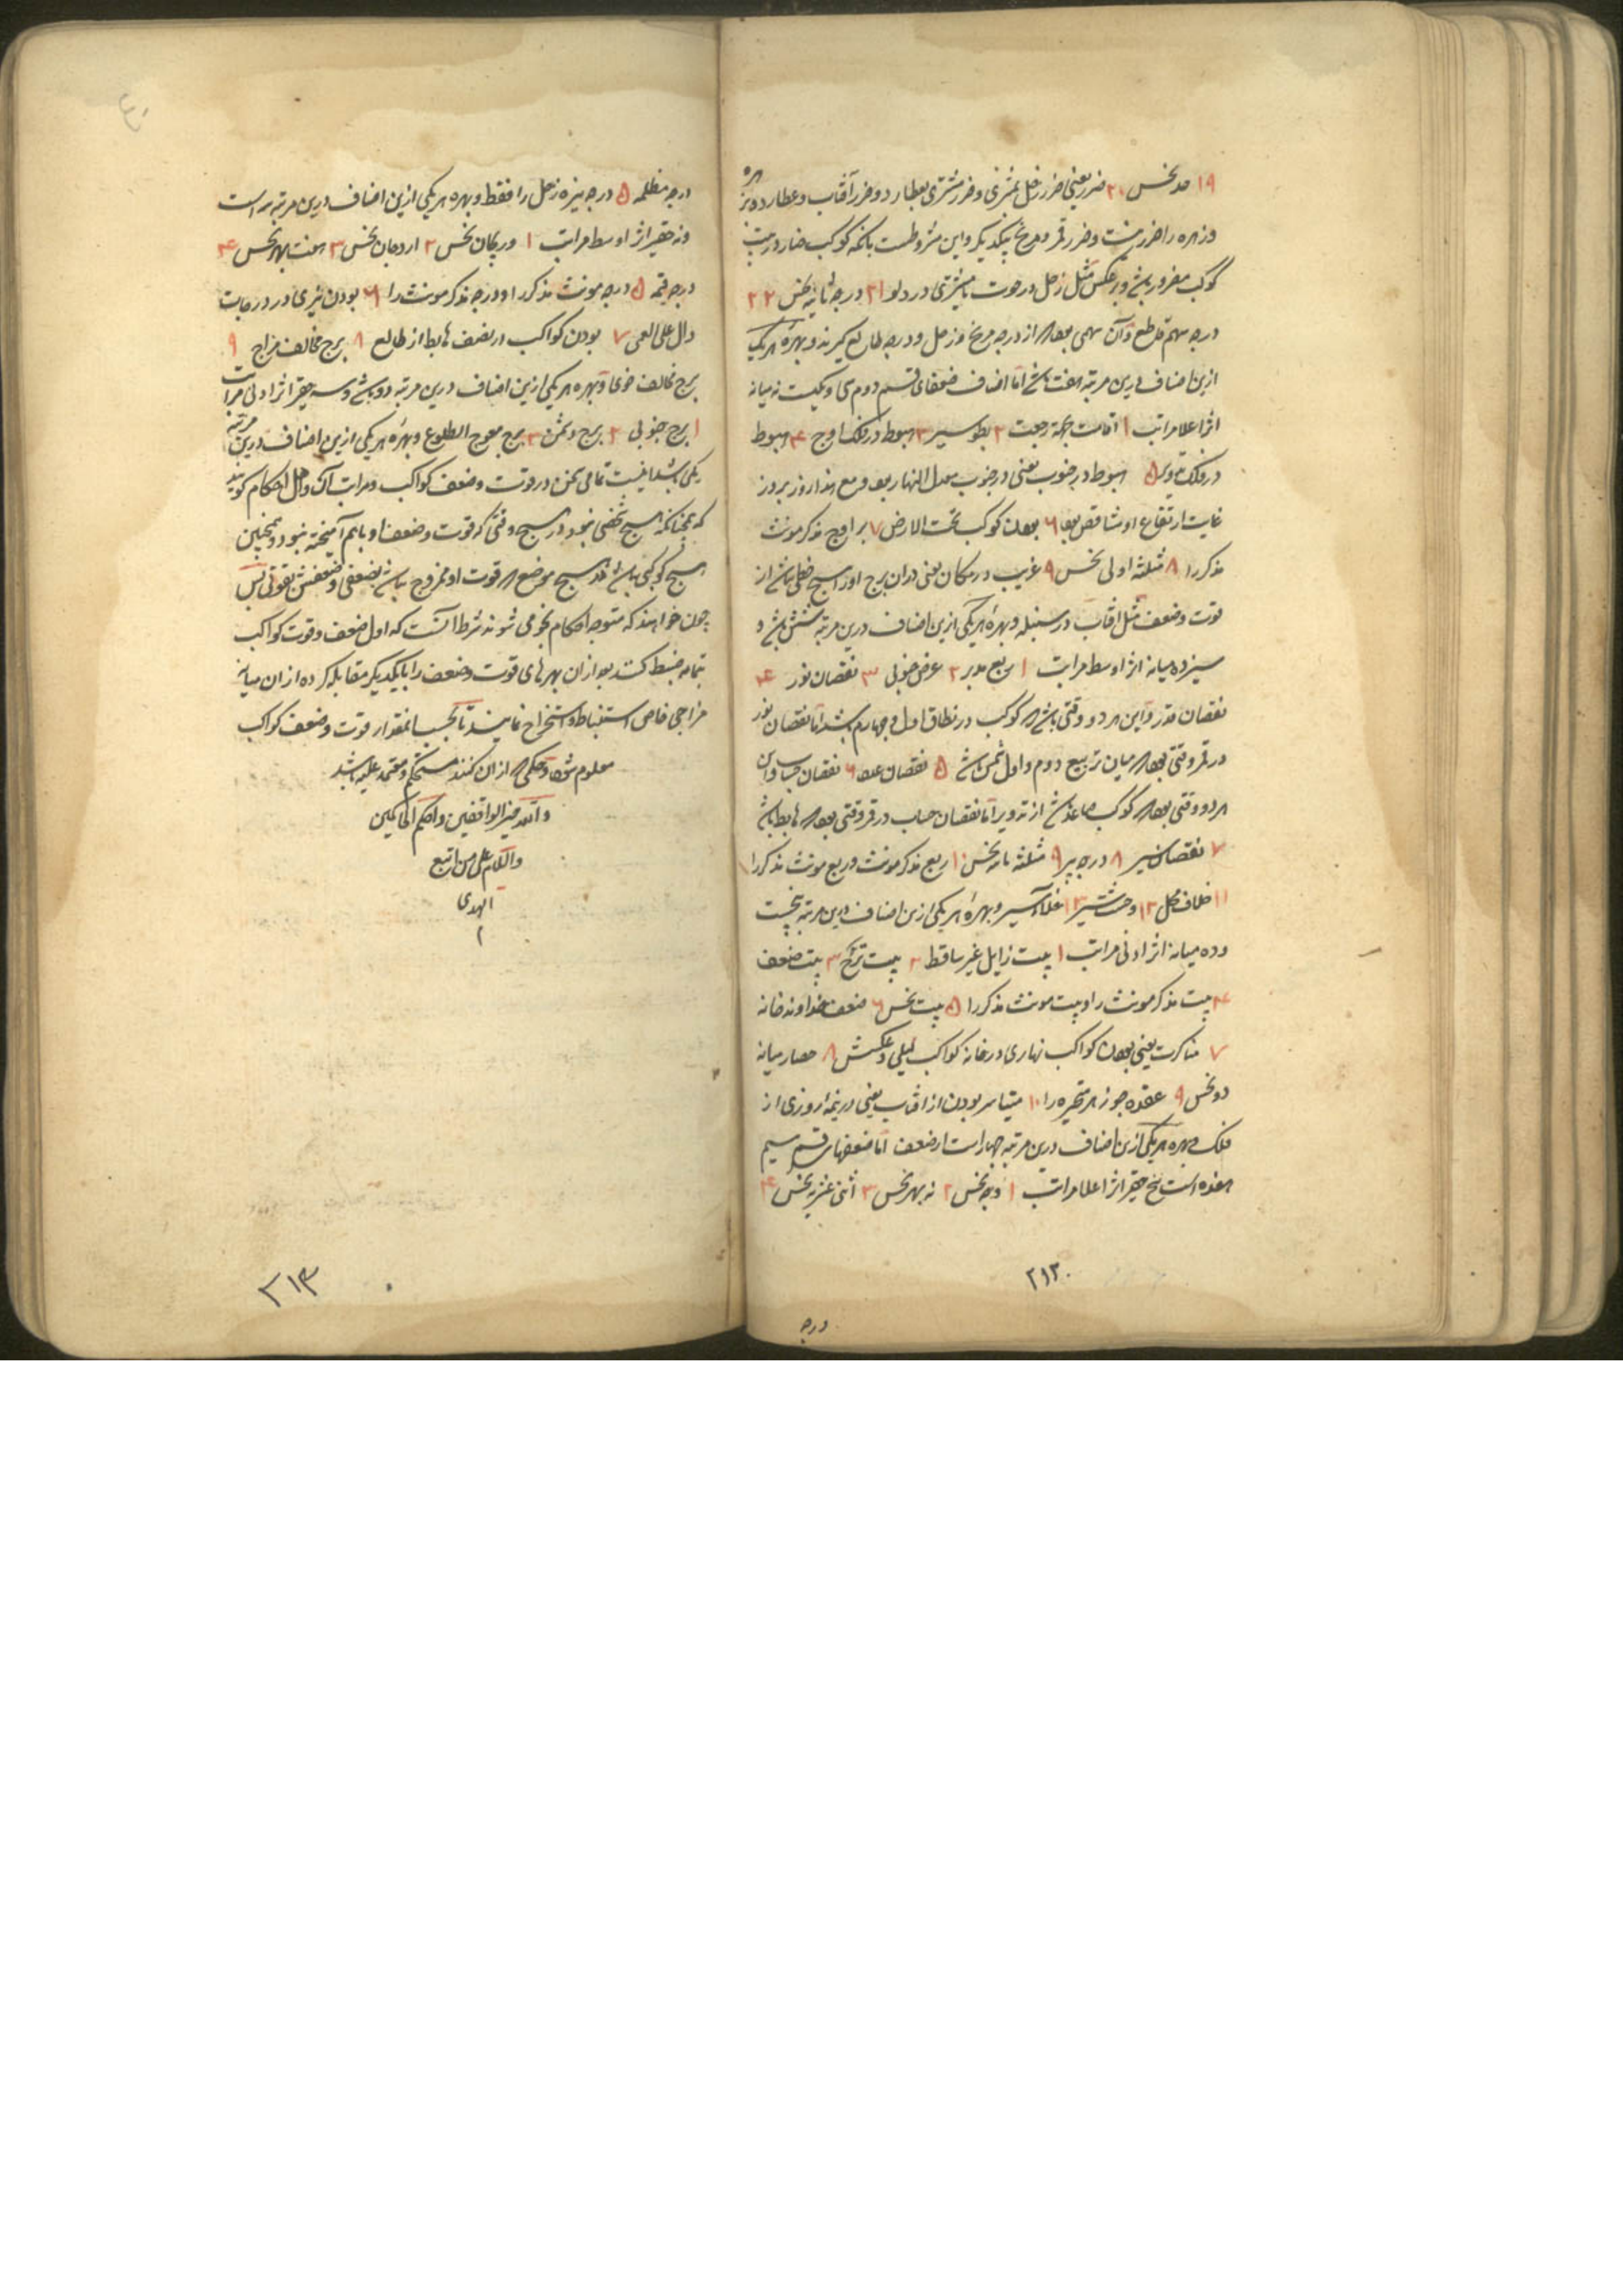 ۱۹ حد نحس ۲۰ ضرر یعنی ضرر زحل بمشتری و ضرر مشتری بعطارد و ضرر آفتاب و عطارد
و زهره را ضرر نیست و ضرر قمر و مریخ بیکدیگر و این مشروطست بانکه کوکب ضار در بیت
کوکب مضرور باشد و برعکس مثل زحل در حوت یا مشتری در دلو ۲۱ درجه ثانیه نحس ۲۲
درجه سهم قاطع و آن سهمی بود که از درجه مریخ و زحل و درجه طالع گیرند و بهره هر یک
ازین اضاف درین مرتبه هفت باشد اما اضاف ضعفای قسم دوم سی و یکیست نه میانه
اثر اعلا مراتب ۱ اقامت جهة رجعت ۲ بطو سیر ۳ هبوط در فلک اوج ۴ هبوط
در فلک تدویر ۵ هبوط در جنوب یعنی در جنوب معدل النهار بود و مع هذا روز بروز
غایت ارتفاع او متناقص بود ۶ بودن کوکب تحت الارض ۷ برج مذکر مونث
مذکر را ۸ مثلثه اولی نحس ۹ غریب در مکان یعنی در آن برج او را هیچ حظی نباشد از
قوت و ضعف مثل آفتاب در سنبله و بهره هر یکی ازین اضاف درین مرتبه شش باشد و
سیزده میانه اثر اوسط مراتب ۱ ربع مدبر ۲ عرض جنوبی ۳ نقصان نور ۴
نقصان قدر و این هر دو وقتی باشد که کوکب در نطاق اول و چهارم باشد اما نقصان نور
در قمر وقتی بود که میان تربیع دوم و اول شمس باشد ۵ نقصان عدد ۶ نقصان حساب و این
هر دو وقتی بود که کوکب صاعد باشد از تدویر اما نقصان حساب در قمر وقتی بود که هابط باشد
۷ نقصان سیر ۸ درجه بیر ۹ مثلثه ثانیه نحس ۱۰ ربع مذکر مونث و ربع مونث مذکر را
۱۱ خلاف محل ۱۲ وحشت سیر ۱۳ خلاء سیر و بهره هر یکی ازین اضاف درین مرتبه پنجست
و ده میانه اثر ادنی مراتب ۱ بیت زایل غیر ساقط ۲ بیت ترح ۳ بیت ضعف
۴ بیت مذکر مونث را و بیت مونث مذکر را ۵ بیت نحس ۶ ضعف خداوند خانه
۷ مناکرت یعنی بودن کواکب نهاری در خانه کواکب لیلی و عکسش ۸ حصار میانه
دو نحس ۹ عقده جوزهر متحیره را ۱۰ متیاسر بودن از آفتاب یعنی در نیمه روزی از
فلک و بهره هر یکی ازین اضاف درین مرتبه چهار است از ضعف اما ضعفهای قسم سیم
هفده است پنج حقیر اثر اعلا مراتب ۱ وجه نحس ۲ نه بهر نحس ۳ اثنی عشریه نحس ۴
۲۱۲
درجه
درجه مظلمه ۵ درجه نیره زحل را فقط و بهره هر یکی ازین اضاف درین مرتبه سه است
و نه حقیر اثر اوسط مراتب ۱ دریجان نحس ۲ اردجان نحس ۳ هفت بهر نحس ۴
درجه قتمه ۵ درجه مونث مذکر را و درجه مذکر مونث را ۶ بودن نیری در درجات
دال علی العمی ۷ بودن کواکب در نصف هابط از طالع ۸ برج مخالف مزاج ۹
برج مخالف خوی و بهره هر یکی ازین اضاف درین مرتبه دو باشد و سه حقیر اثر ادنی مراتب
۱ برج جنوبی ۲ برج دشمن ۳ برج معوج الطلوع و بهره هر یکی ازین اضاف درین مرتبه
یکی باشد اینست تمامی سخن در قوت و ضعف کواکب و مراتب آن و اهل احکام گویند
که همچنانکه هیچ شخصی نبود در هیچ وقتی که قوت و ضعف او باهم آمیخته نبود و همچنین
هیچ کوکبی نباشد در هیچ موضع که قوت او ممزوج نباشد بضعفی و ضعفش بقوتی پس
چون خواهند که متوجه احکام نجومی شوند شرط آنست که اول ضعف و قوت کواکب
بتمامه ضبط کنند بعد از آن بهرهای قوت و ضعف را با یکدیگر مقابله کرده از آن میانه
مزاجی خاص استنباط و استخراج نمایند تا بحسب مقدار قوت و ضعف کواکب
معلوم شود و حکمی که از آن کنند مستحکم و معتمد علیه باشد
والله خیر الواقفین و احکم الحاکمین
والسلام علی من اتبع
الهدی
۲۱۳